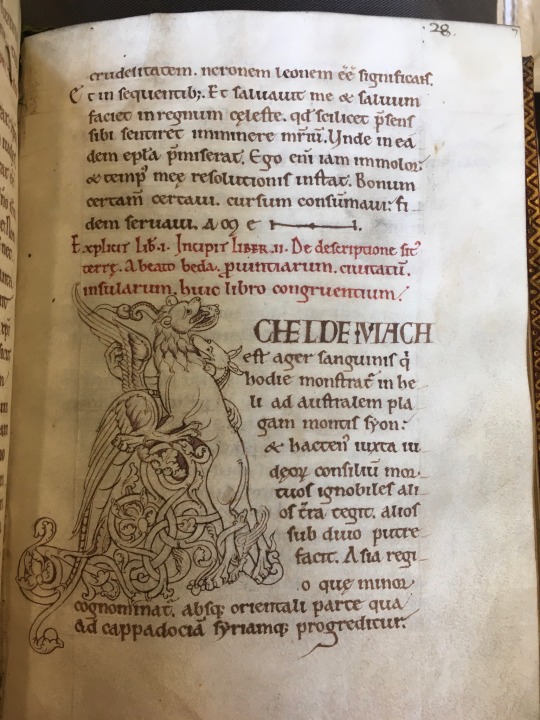 28.
crudelitatem. neronem leonem ēē significās.
Et in sequentib;. Et salvavit me & salvum
faciet in regnum cęleste. qđ scilicet p̄sens
sibi sentiret imminere mr̄iū. Unde in ea
dem epłā p̄miserat. Ego enī iam immolor
& temp' meę resolutionis instat. Bonum
certam̄ certavi. cursum consūmavi: fi
dem servavi. A M E N.
Explicit Lib. I. Incipit Liber. II. De descriptione
terrę. A beato beda. provintiarum. civitatū.
insularum. huic libro congruentium.
CHELDEMACH
est ager sanguinis q̄
hodie monstrat' in he
li ad australem pla
gam montis syon:
& hacten' iuxta iu
dęoꝝ consiliū mor
tuos ignobiles ali
os t̄ra tegit. alios
sub divo putre
facit. Asia regi
o quę minor
cognominat'. absq; orientali parte qua
ad cappadociā syriamq; progreditur.